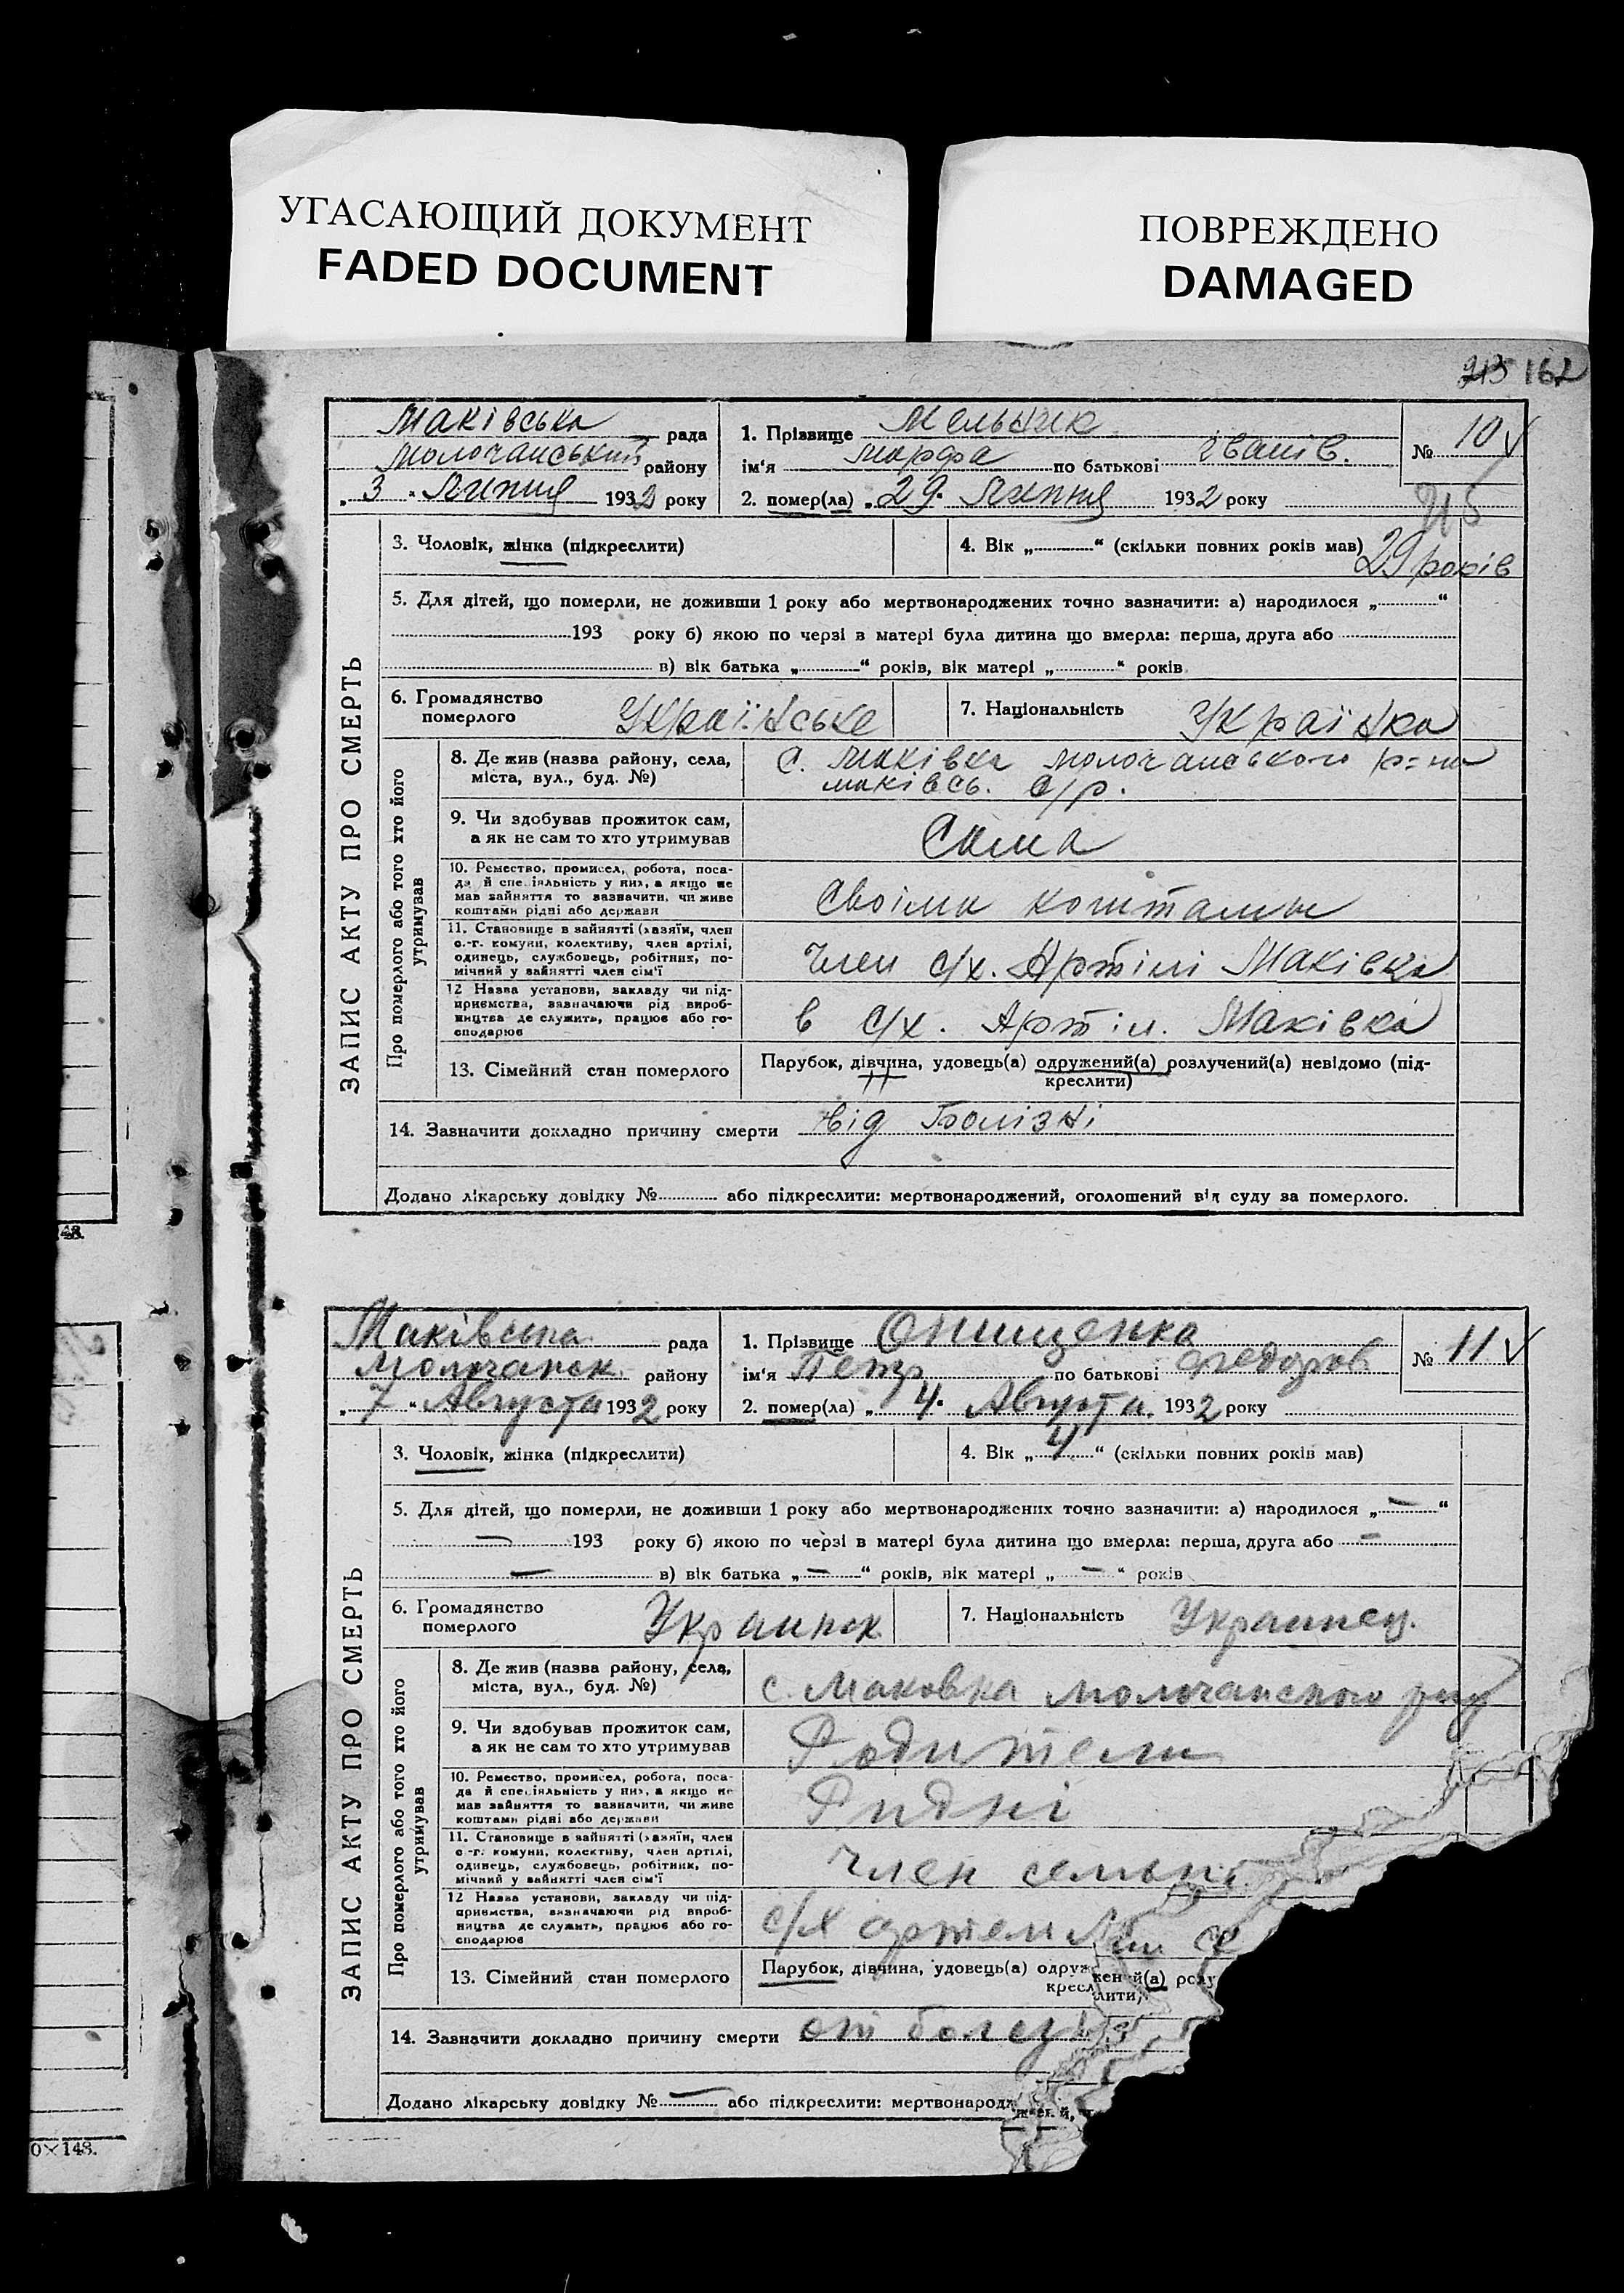 УГАСАЮЩИЙ ДОКУМЕНТ
FADED DOCUMENT
ПОВРЕЖДЕНО
DAMAGED
213 162
Маківська рада
Молочанський району
„ 3 “ Липня 1932 року
1. Прізвище Мельник
ім'я Марфа по батькові Іванів.
2. помер(ла) „ 29. Липня 1932 року
№ 10 v
3. Чоловік, жінка (підкреслити)
4. Вік „ “ (скільки повних років мав) 29 років
5. Для дітей, що померли, не доживши 1 року або мертвонароджених точно зазначити: а) народилося „ “
193 року б) якою по черзі в матері була дитина що вмерла: перша, друга або
в) вік батька „ “ років, вік матері „ “ років
6. Громадянство померлого Українське
7. Національність Українка
ЗАПИС АКТУ ПРО СМЕРТЬ
Про померлого або того хто його утримував
8. Де жив (назва району, села,
міста, вул., буд. №)
С. Маківка Молочанського р=на
маківсь. с/р.
9. Чи здобував прожиток сам,
а як не сам то хто утримував
Сама
10. Ремество, промисел, робота, поса-
да й спеціяльність у них, а якщо не
мав зайняття то зазначити, чи живе
коштами рідні або держави
Своіми коштами
11. Становище в зайнятті (хазяїн, член
с.-г. комуни, колективу, член артілі,
одинець, службовець, робітник, по-
мічний у зайнятті член сім'ї
Член с/х. Артілі Маківка
12 Назва установи, закладу чи під-
приємства, зазначаючи рід вироб-
ництва де служить, працює або го-
сподарює
в с/х. Артіл. Маківка
13. Сімейний стан померлого
Парубок, дівчина, удовець(а) одружений(а) розлучений(а) невідомо (під-
креслити)
14. Зазначити докладно причину смерти від Болізні
Додано лікарську довідку № або підкреслити: мертвонароджений, оголошений від суду за померлого.
48.
Маківська рада
Молочанск. району
„ 7 “ Августа 1932 року
1. Прізвище Онищенко
ім'я Петр по батькові Федоров
2. помер(ла) „ 4. Августа. 1932 року
№ 11 v
3. Чоловік, жінка (підкреслити)
4. Вік „ 4 “ (скільки повних років мав)
5. Для дітей, що померли, не доживши 1 року або мертвонароджених точно зазначити: а) народилося „ — “
— 193 року б) якою по черзі в матері була дитина що вмерла: перша, друга або —
— в) вік батька „ — “ років, вік матері „ — “ років
6. Громадянство померлого Украинск
7. Національність Украинец.
ЗАПИС АКТУ ПРО СМЕРТЬ
Про померлого або того хто його утримував
8. Де жив (назва району, села,
міста, вул., буд. №)
с. Маковка Молочанского
9. Чи здобував прожиток сам,
а як не сам то хто утримував
Родители
10. Ремество, промисел, робота, поса-
да й спеціяльність у них, а якщо не
мав зайняття то зазначити, чи живе
коштами рідні або держави
Ридні
11. Становище в зайнятті (хазяїн, член
с.-г. комуни, колективу, член артілі,
одинець, службовець, робітник, по-
мічний у зайнятті член сім'ї
член семьи
12 Назва установи, закладу чи під-
приємства, зазначаючи рід вироб-
ництва де служить, працює або го-
сподарює
с/х артели
13. Сімейний стан померлого
Парубок, дівчина, удовець(а) одружений(а) розлу
креслити)
14. Зазначити докладно причину смерти от болез
Додано лікарську довідку № — або підкреслити: мертвонароджений,
0×148.